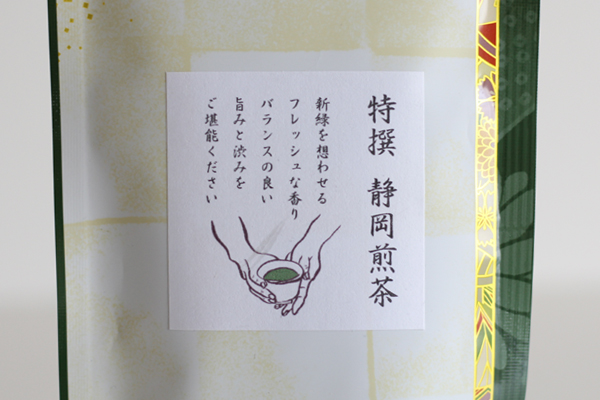 特撰 静岡煎茶
新緑を想わせる
フレッシュな香り
バランスの良い
旨みと渋みを
ご堪能ください